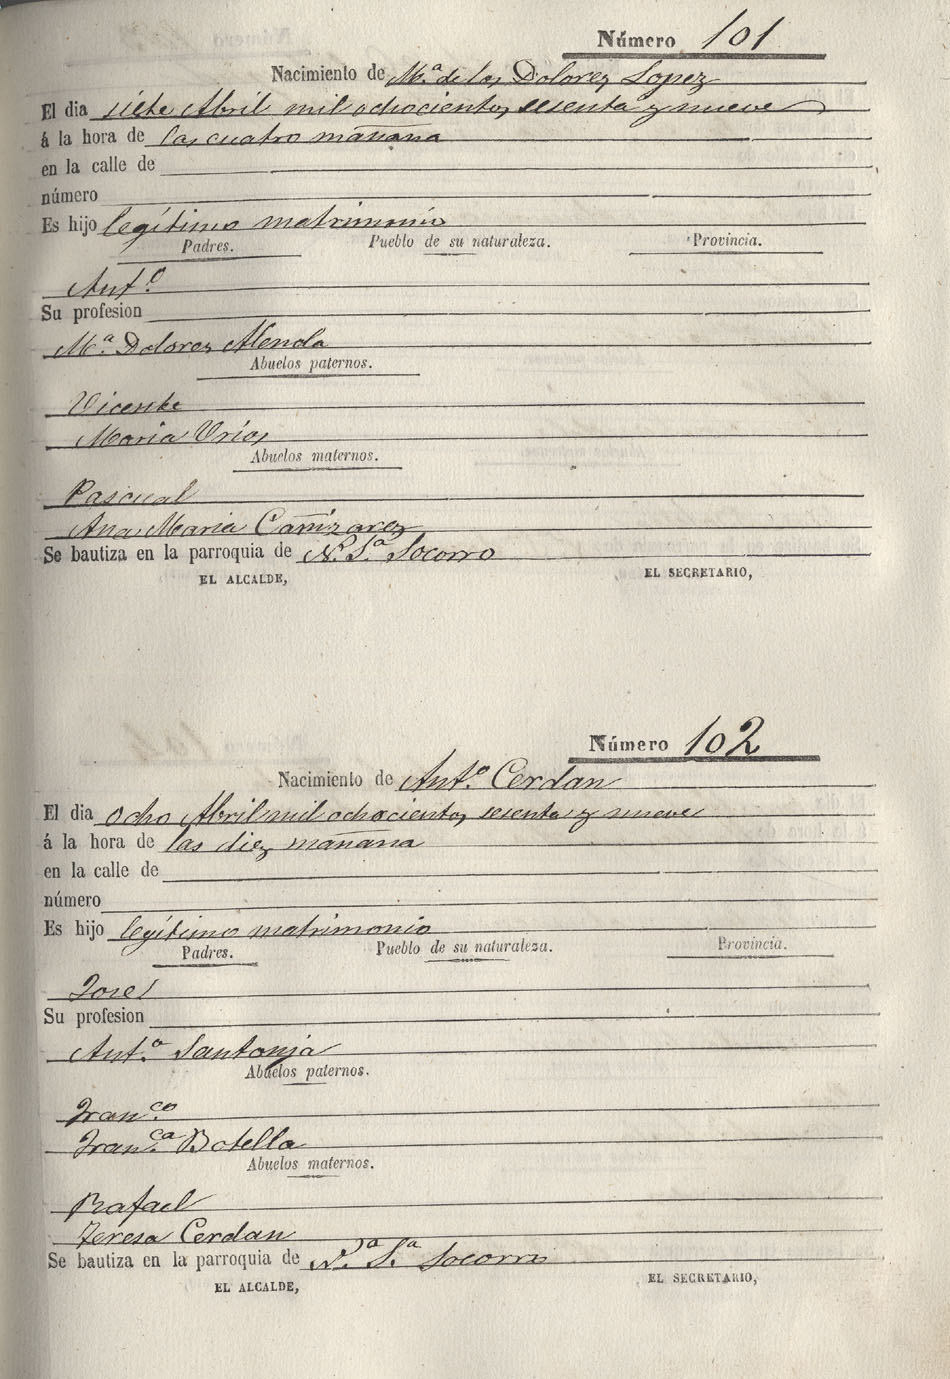 Número 101
Nacimiento de Mª de los Dolores Lopez
El dia siete Abril mil ochocientos sesenta y nueve
á la hora de las cuatro mañana
en la calle de
número
Es hijo legítimo matrimonio
Padres. Pueblo de su naturaleza. Provincia.
Antº
Su profesion
Mª Dolores Alenda
Abuelos paternos.
Vicente
Maria Urios
Abuelos maternos.
Pascual
Ana Maria Cañizares
Se bautiza en la parroquia de Nª Sª Socorro
EL ALCALDE, EL SECRETARIO,
Número 102
Nacimiento de Antº Cerdan
El dia ocho Abril mil ochocientos sesenta y nueve
á la hora de las diez mañana
en la calle de
número
Es hijo legítimo matrimonio
Padres. Pueblo de su naturaleza. Provincia.
José
Su profesion
Antª Santonja
Abuelos paternos.
Franco
Franca Botella
Abuelos maternos.
Rafael
Teresa Cerdan
Se bautiza en la parroquia de Nª Sª Socorro
EL ALCALDE, EL SECRETARIO,